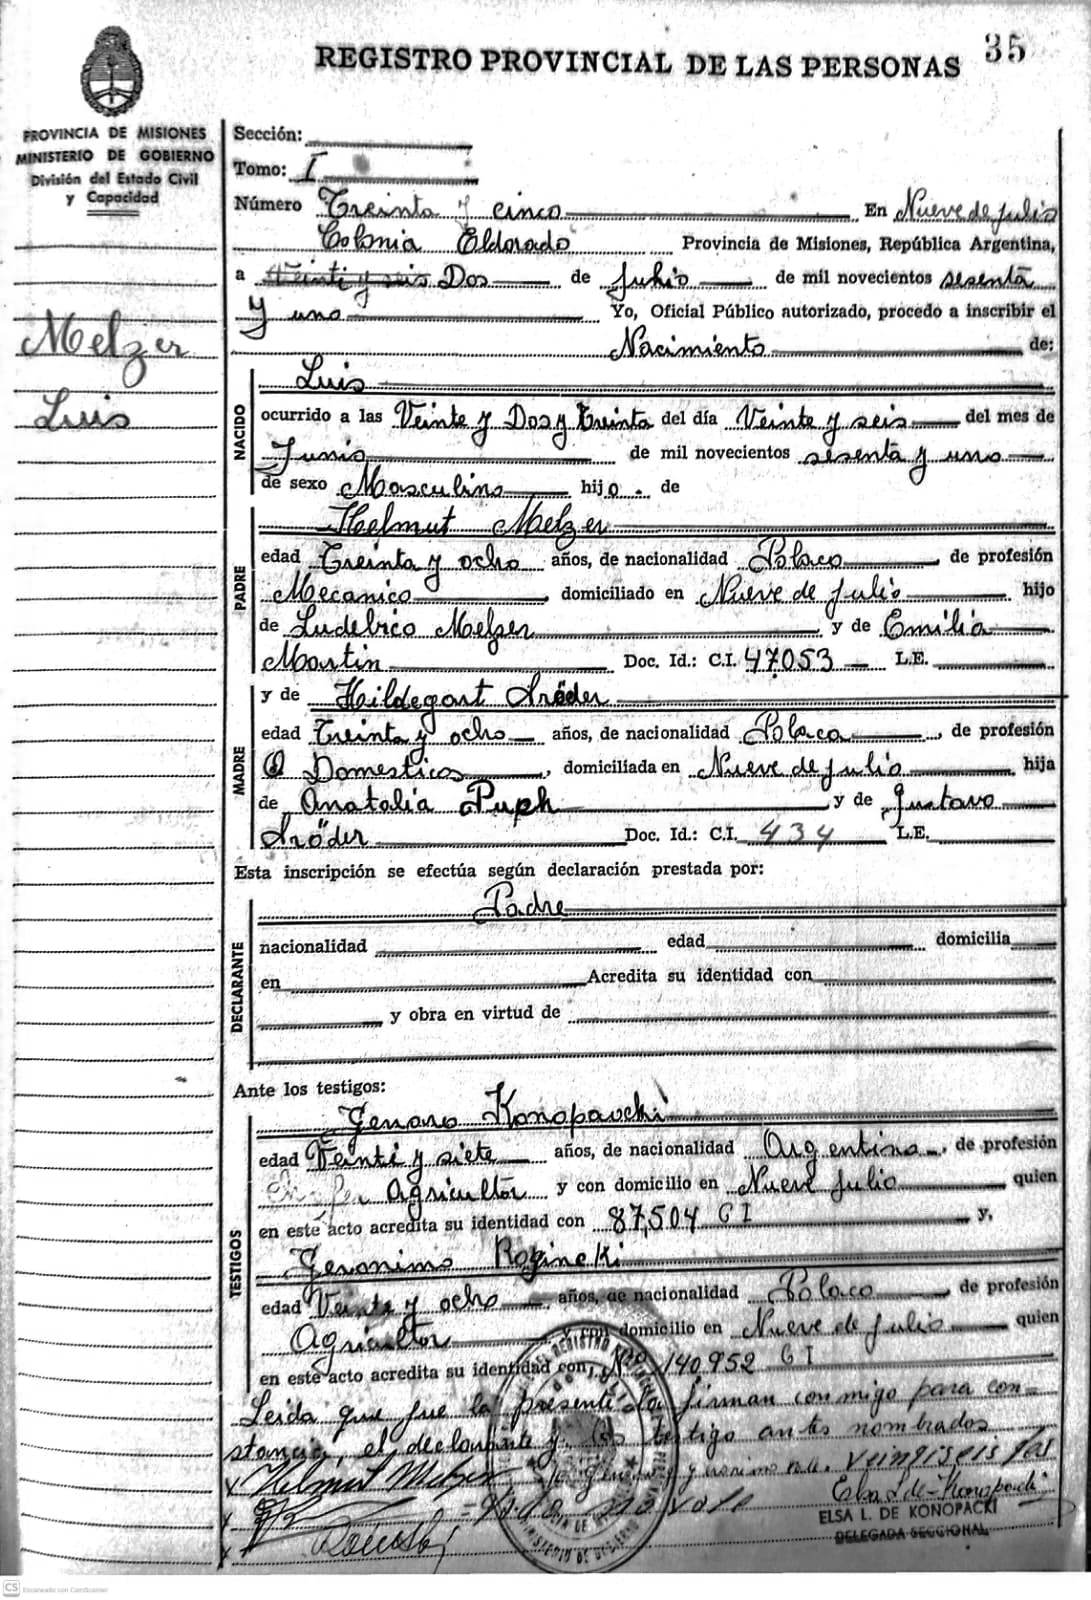 35
REGISTRO PROVINCIAL DE LAS PERSONAS
PROVINCIA DE MISIONES
MINISTERIO DE GOBIERNO
División del Estado Civil
y Capacidad
Melzer
Luis
Sección:
Tomo: I
Número Treinta y cinco En Nueve de Julio
Colonia Eldorado Provincia de Misiones, República Argentina,
a Veinti y seis Dos de Julio de mil novecientos sesenta
y uno Yo, Oficial Público autorizado, procedo a inscribir el
Nacimiento de:
NACIDO
Luis
ocurrido a las Veinte y Dos y Treinta del día Veinte y seis del mes de
Junio de mil novecientos sesenta y uno
de sexo Masculino hijo. de
PADRE
Helmut Melzer
edad Treinta y ocho años, de nacionalidad Polaco de profesión
Mecanico, domiciliado en Nueve de Julio hijo
de Ludebico Melzer y de Emilia
Martin Doc. Id.: C.I. 47053 L.E.
MADRE
y de Hildegart Sröder
edad Treinta y ocho años, de nacionalidad Polaca, de profesión
Q Domesticos, domiciliada en Nueve de Julio hija
de Anatalia Puph y de Gustavo
Sröder Doc. Id.: C.I. 434 L.E.
Esta inscripción se efectúa según declaración prestada por:
DECLARANTE
Padre
nacionalidad edad domicilia
en Acredita su identidad con
y obra en virtud de
Ante los testigos:
TESTIGOS
Genaro Konopavcki
edad Veinti y siete años, de nacionalidad Argentino, de profesión
Agricultor y con domicilio en Nueve Julio quien
en este acto acredita su identidad con 87,504 CI y,
Geronimo Rogincki
edad Veinte y ocho, años, de nacionalidad Polaco de profesión
Agricultor y con domicilio en Nueve de Julio quien
en este acto acredita su identidad con, Nº 140,952 CI
Leida que fue la presente la firman conmigo para con=
stancia, el declarante y los testigo antes nombrados
x Helmut Melzer veintiseis Dos
Elsa L de Konopacki
ELSA L. DE KONOPACKI
DELEGADA SECCIONAL
CS Escaneado con CamScanner